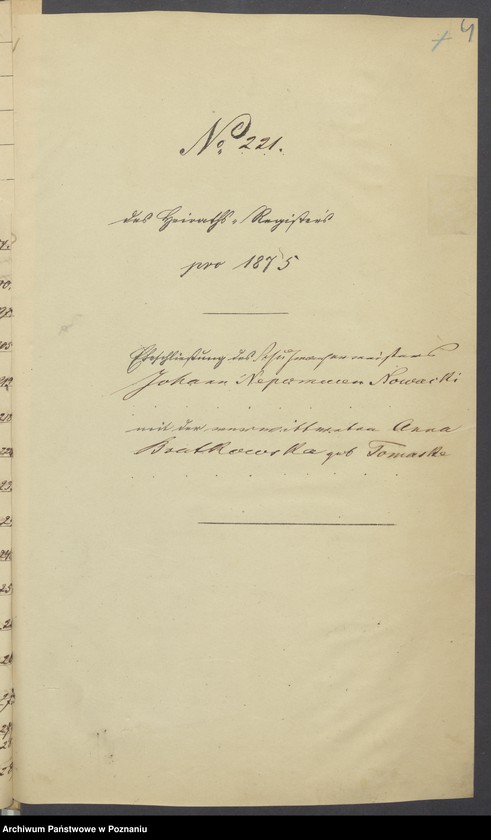 4
No 221.
des Heiraths-Registers
pro 1875
Eheschließung des Schuhmachermeisters
Johann Nepomucen Nowacki
mit der verwittweten Anna
Bratkowska geb Tomaske
Archiwum Państwowe w Poznaniu